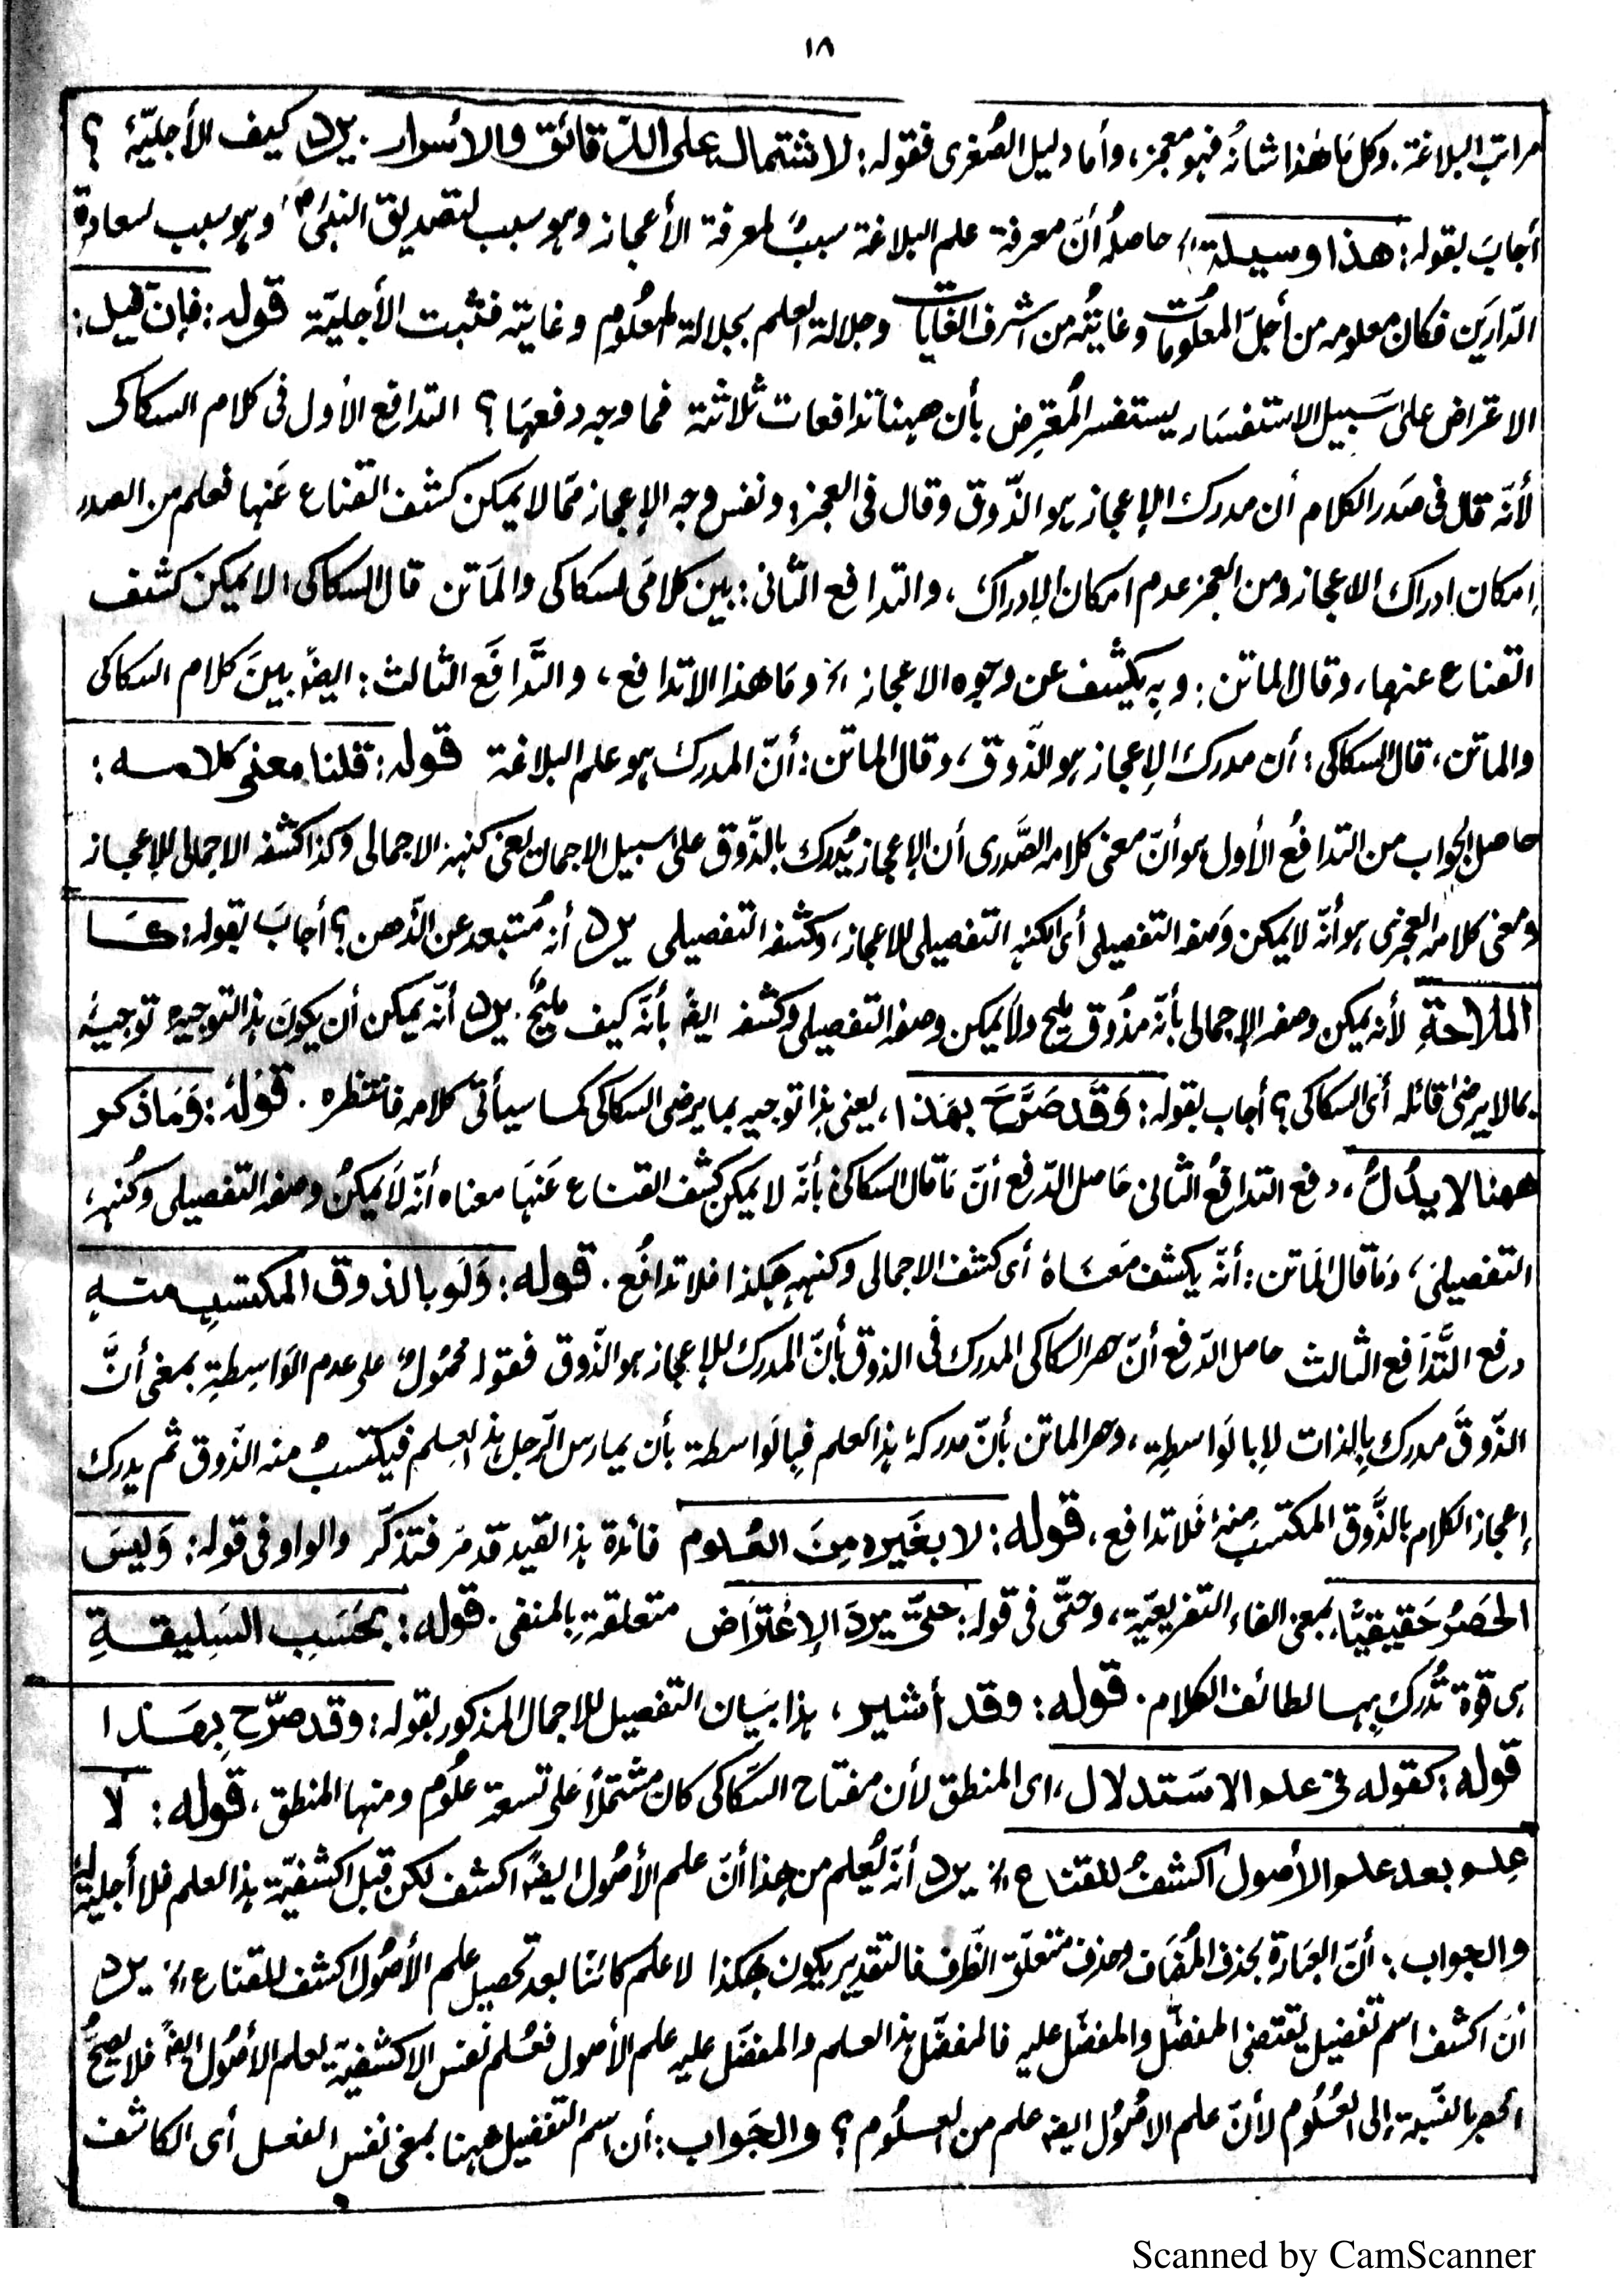 ١٨
مراتب البلاغة. وكل ما هٰذا شانُه فهو معجز، وأما دليل الصُغرى فقوله: لاشتماله على الدّقائق والأسرار. يرد كيف الأجليّة ؟
أجابَ بقوله: هذا وسيلة الخ حاصلُه أنّ معرفة علم البلاغة سببٌ لمعرفة الأعجاز وهو سبب لتصديق النبيّ ؐ وهو سبب لسعادة
الدّارَين فكان معلومه من أجلّ المعلُومات وغايتُه من اشرف الغايات وجلالة العلم بجلالة المعلُوم وغايته فثبت الأجليّة قوله: فإن قيل:
الاعتراض على سَبيل الاستفسَار يستفسر المُعترِض بأن ههنا تدافعات ثلاثة فما وجه دفعهَا ؟ التدافع الأول فى كلام السكاكى
لأنّه قال فى صَدر الكلام أن مدرك الإعجاز هو الذّوق وقال فى العجز: ونفس وجه الإعجاز ممّا لا يمكن كشف القناع عَنها فعلم من الصدر
اِمكان ادراك الاعجاز ومن العجز عدم امكان الإدراك، والتدافع الثانى: بين كلامَى السكاكى والمَاتن قال السكاكى: لا يمكن كشف
القناع عنها، وقال الماتن: وبه يكشف عن وجوه الاعجاز الخ ومَا هذا الا تدافع، والتَّدافع الثالث: ايضًا بينَ كلام السكاكى
والماتن، قال السكاكى: أن مدرك الإعجاز هو الذّوق، وقال الماتن: أنّ المدرك هو علم البلاغة قوله: قلنا معنى كلامه:
حاصل الجواب من التدافُع الأول هو أنّ معنى كلامه الصَّدرى أن الإعجاز يُدرك بالذّوق على سبيل الاجمال يعنى كنهه الاجمالى وكذا كشفه الاجمالى للإعجاز
ومعنى كلامه العجزى هو أنّه لا يمكن وَصفه التفصيلى أى الكنه التفصيلى للاعجاز، وكشفه التفصيلى يرد أنه مُستبعد عن الذّهن ؟ أجابَ بقوله: كمَا
الملاحةِ لأنه يمكن وصفه الإجمالى بأنّه مذُوق مليح ولا يمكن وصفه التفصيلى وكشفه ايضًا بأنّه كيف مليحٌ. يرد أنّه يمكن أن يكونَ هذا التوجيه توجيهًا
بما لا يرضى قائله أى السكاكى؟ أجاب بقوله: وَقَد صَرَّحَ بهٰذا، يعنى هذا توجيه بما يرضى السكاكى كما سيأتى كلامه فانتظره. قوله: وَمَا ذكر
ههنا لا يدُلُّ، دفع التدافُع الثانى حَاصل الدّفع أنّ مَا قال السكاكى بأنّه لا يمكن كشف القناع عَنهَا معناه أنّه لا يمكنُ وصفه التفصيلى وكُنهه
التفصيلى، ومَا قال المَاتن: أنّه يكشف مَعنَاهُ أى كشف الاجمالى وكنهه هكذا فلا تدافُع. قوله: وَلَو بالذوق المكتسبِ منهِ
دفع التَّدَافع الثالث حاصل الدّفع أنّ حصر السكاكى المدرك فى الذوق بأنّ المدرك للإعجاز هو الذّوق فقوله محمُولٌ على عدم الوَاسِطةِ بمعنى أنَّ
الذّوقَ مدرك بِالذات لا بالوَاسطةِ، وحصر الماتن بأنّ مدركهُ هذا العلم فبالوَاسطة بأن يمارس الرّجل هذا العِلم فيكتسبُ منه الذّوق ثم يدرك
إعجاز الكلام بالذَّوق المكتسَب منه فَلا تدافع، قوله: لا بغَيرهٖ مِنَ العُلوم فائدة هذا القيد قد مَر فتذكّر والواو فى قوله: وَليسَ
الحَصرُ حَقيقيًّا، بمعنى الفاء التفريعيّة، وحتّى فى قوله: حتّى يردَ الإعْترَاض متعلقة بِالمنفى. قوله: بحَسَبِ السَلِيقةِ
هى قوّة تُدرك بِها لطائف الكلام. قوله: وقد أشير، هذا بَيان التفصيل للاجمال المذكور بقوله: وقد صرّح بِهٰذا
قوله: كقوله فى علم الاستدلال، اى المنطق لأن مفتاح السكّاكى كان مشتملًا على تسعة علُوم ومنها المنطق، قوله: لا
عِلم بعد علم الأصول أكشفُ للقناع الخ يرد أنّه يُعلم من هذا أنّ علم الأصُول ايضًا اكشف لكن قبل اكشفيّة هذا العلم فلا أجلية له
والجواب: أنّ العبَارة بحذف المُضَاف وحذف متعلّق الظّرف فالتقدير يكون هكذا لا علم كائنا بعد تحصيل علم الأصُول اكشف للقناع الخ يرد
أنّ اكشف اسم تفضيل يقتضى المفضّل والمفضّل عليه فالمفضّل هذا العلم والمفضّل عليه علم الأصول فعُلم نفس الاكشفيّة لعلم الأصُول ايضًا فلا يصحُّ
الحصر بالنّسبة إلى العُلُوم لأنّ علم الاصُول ايضًا علم من العلُوم؟ والجَواب: أن اسم التفضيل ههنا بمعنى نفس الفعل أى الكاشف
Scanned by CamScanner